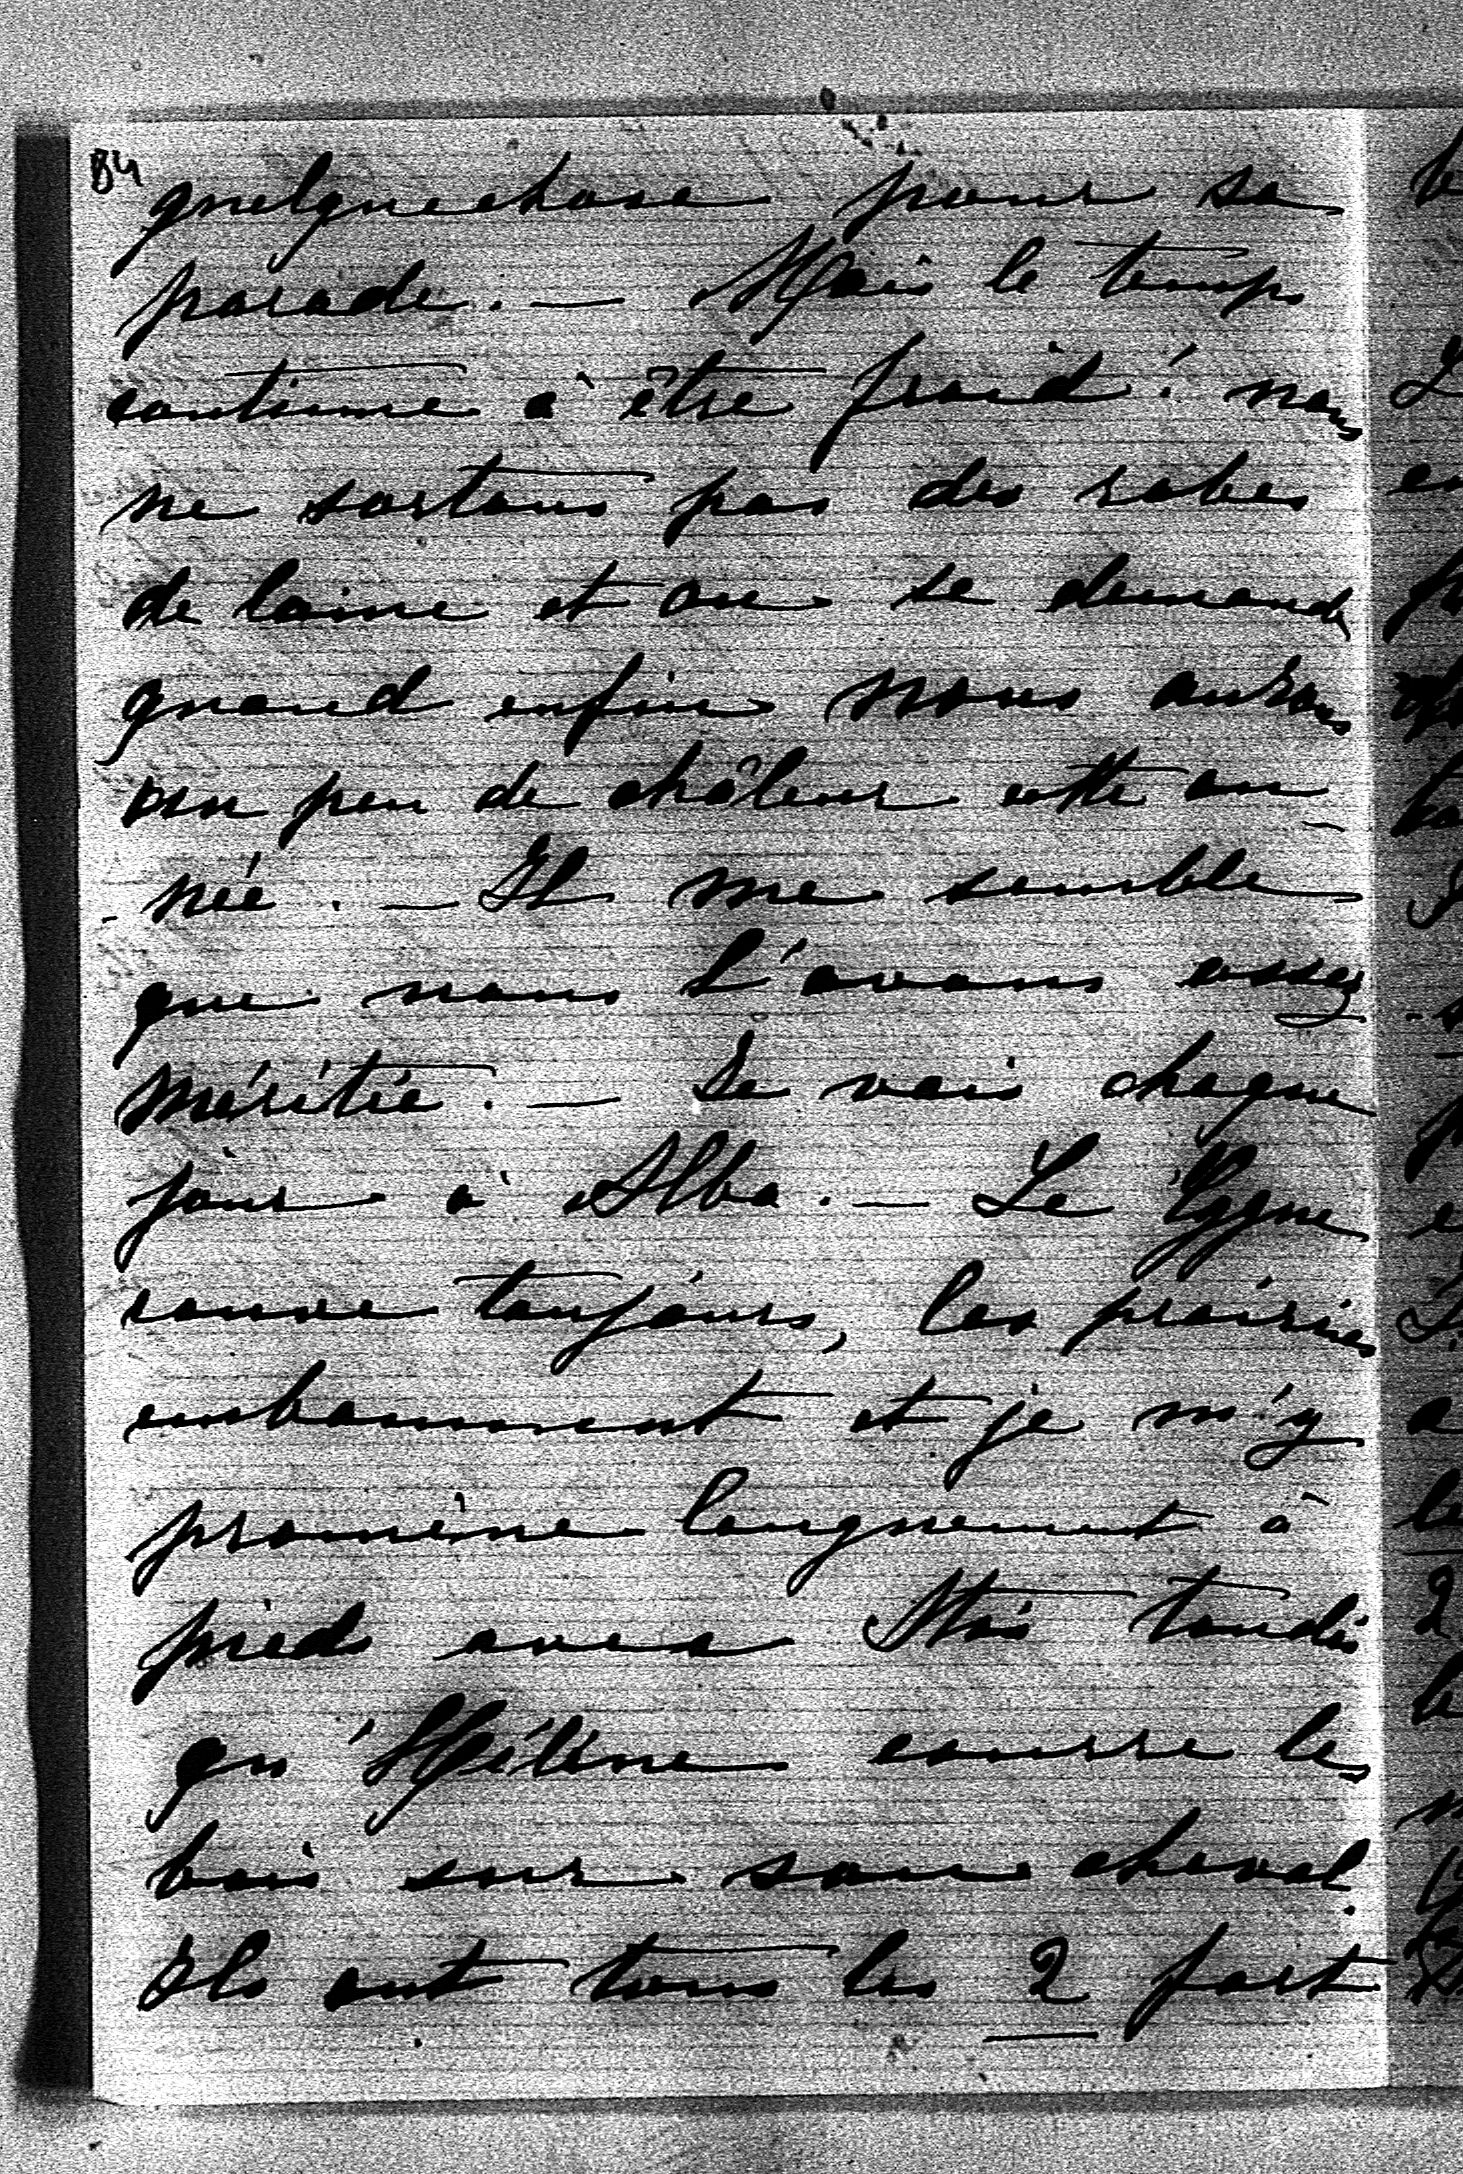 84
quelquechose pour sa
parade. — Mais le temps
continue à être froid! nous
ne sortons pas des robes
de laine et on se demande
quand enfin nous aurons
un peu de châleur cette an-
-née. — Il me semble
que nous l'avons assez
méritée. — Je vais chaque
jour à Alba. — Le Cygne
couve toujours, les prairies
embaument et je m'y
promène longuement à
pied avec tandis
qu'Hélène courre les
bois sur son cheval.
Ils ont tous les 2 fort